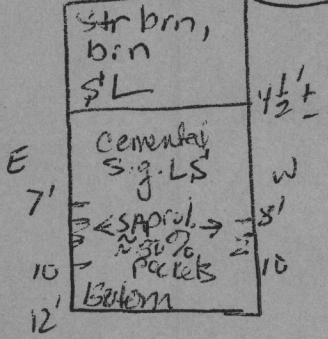 str brn,
brn
SL
4 1/2' ±
Cemented
E
s.g. LS
W
7'
← SAprol. → 8'
≈ 30%
10 Pockets 10
12' Bottom